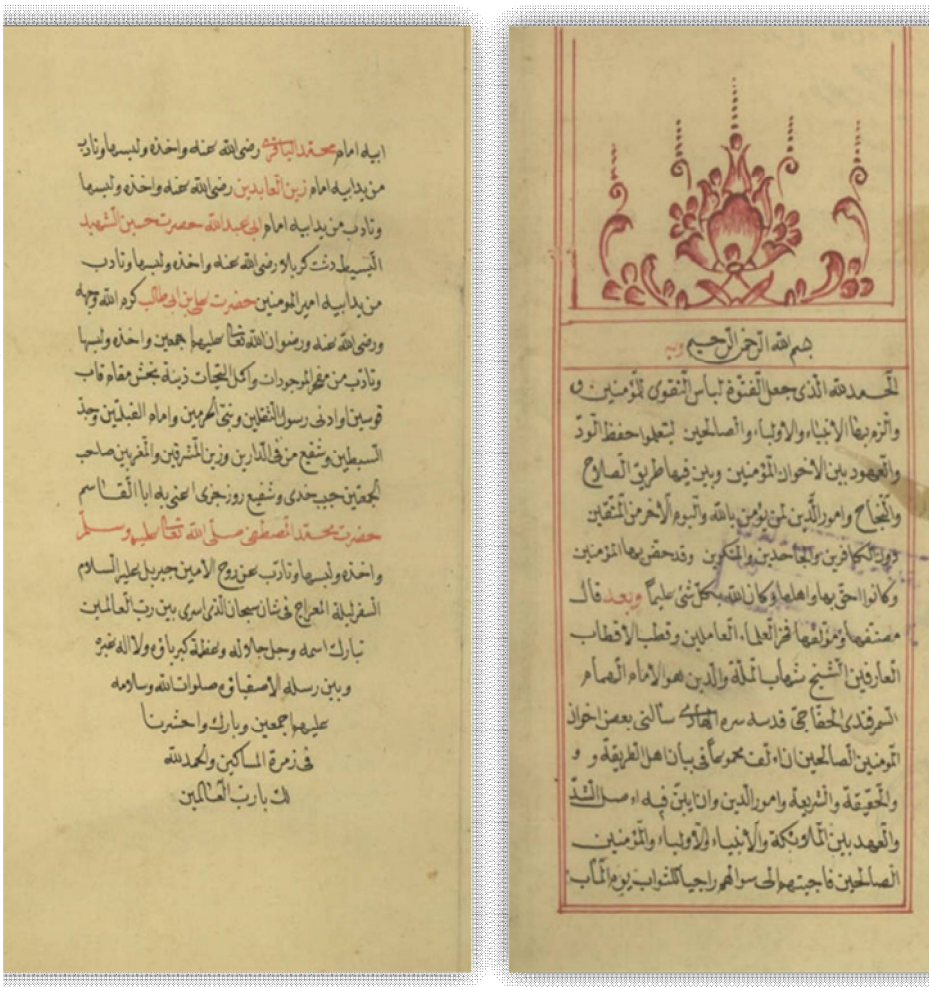 بسم الله الرحمن الرحيم وبه
الحمد لله الذى جعل الفتوة لباس التقوى للمؤمنين
والزم بها الانبياء والاولياء والصالحين ليتعلموا حفظ الودّ
والعهود بين الاخوان المؤمنين وبين فيها طريق الصلاح
والنجاح وامور الدين لمن يؤمن بالله واليوم الاخر من المتقين
دون الكافرين والجاحدين والمنكرين وقد حقق بها المؤمنين
وكانوا احق بها واهلها وكان الله بكل شئ عليماً وبعد قال
مصنفها ومؤلفها فخر العلماء العاملين وقطب الاقطاب
العارفين الشيخ شهاب الملة والدين هو الامام الهمام
السمرقندى الخفاجى قدسه سره الهادى سألنى بعض اخوان
المومنين الصالحين ان اولف مجموعاً فى بيان اهل الطريقة و و
والحقيقة والشريعة وامور الدين وان ابيّن فيه اصل الشدّ
والعهد بين الملائكة والانبياء والاولياء والمؤمنين
الصالحين فاجبتهم الى سوالهم راجيا للثواب يوم المأب
ابيه امام محمد الباقر رضى الله عنه واخذه ولبسها وتادب
من يد ابيه امام زين العابدين رضى الله عنه واخذه ولبسها
وتادب من يد ابيه امام ابى عبد الله حضرت حسين الشهيد
دشت كربلا رضى الله عنه واخذه ولبسها وتادب
من يد ابيه امير المومنين حضرت على بن ابى طالب كرم الله وجهه
ورضى الله عنه ورضوان الله تعالى عليهم اجمعين واخذه ولبسها
وتادب من مفخر الموجودات واكمل التحيات زينة بخش مقام قاب
قوسين او ادنى رسول الثقلين ونبى الحرمين وامام القبلتين وجد
السبطين وشفيع من فى الدارين وزين المشرقين والمغربين صاحب
الجمعتين وشفيع روز جزى اعنى به ابا القاسم
حضرت محمد المصطفى صلى الله تعالى عليه وسلّم
واخذه ولبسها وتادب عن روح الامين جبريل عليه السلام
السفر ليلة المعراج فى شان سبحان الذى اسرى بين رب العالمين
تبارك اسمه وجل جلاله وعظمة كبرياؤه ولا اله غيره
وبين رسله الاصفياؤه صلوات الله وسلامه
عليهم اجمعين وبارك واحشرنا
فى زمرة المساكين والحمد لله
لك يا رب العالمين